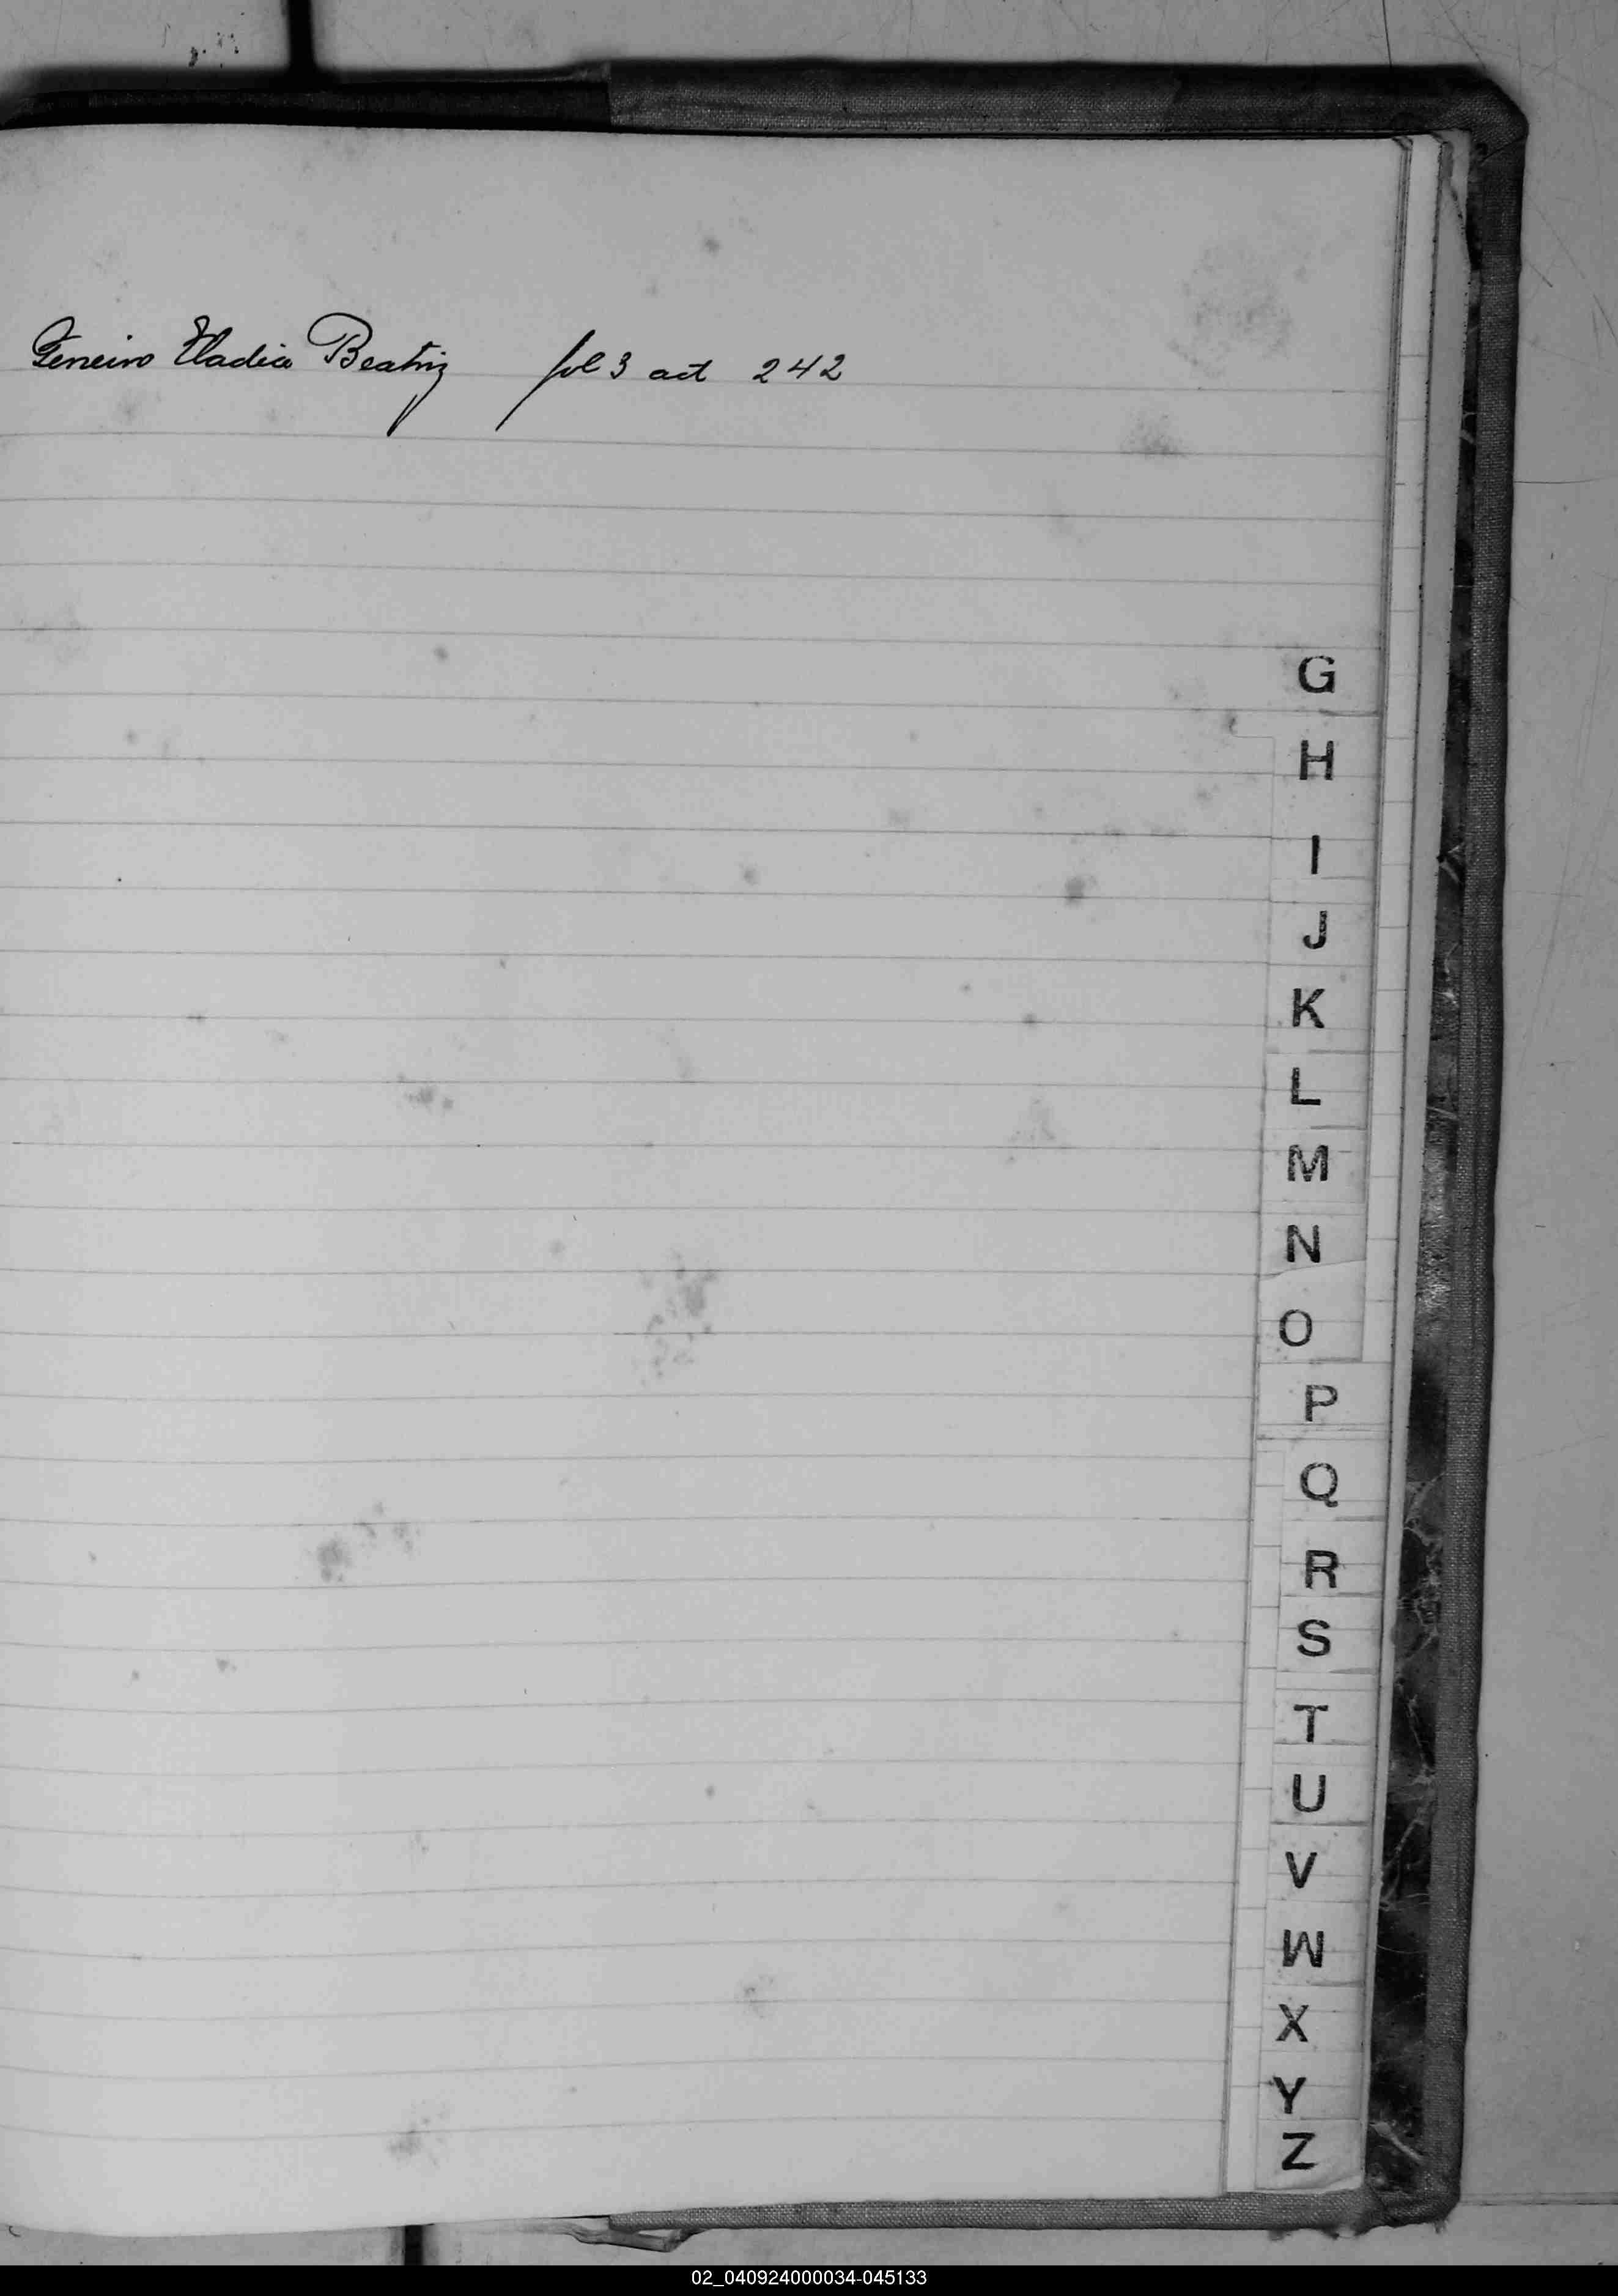 Ferreiro Eladia Beatriz fol 3 act 242
G
H
I
J
K
L
M
N
O
P
Q
R
S
T
U
V
W
X
Y
Z
02_040924000034-045133